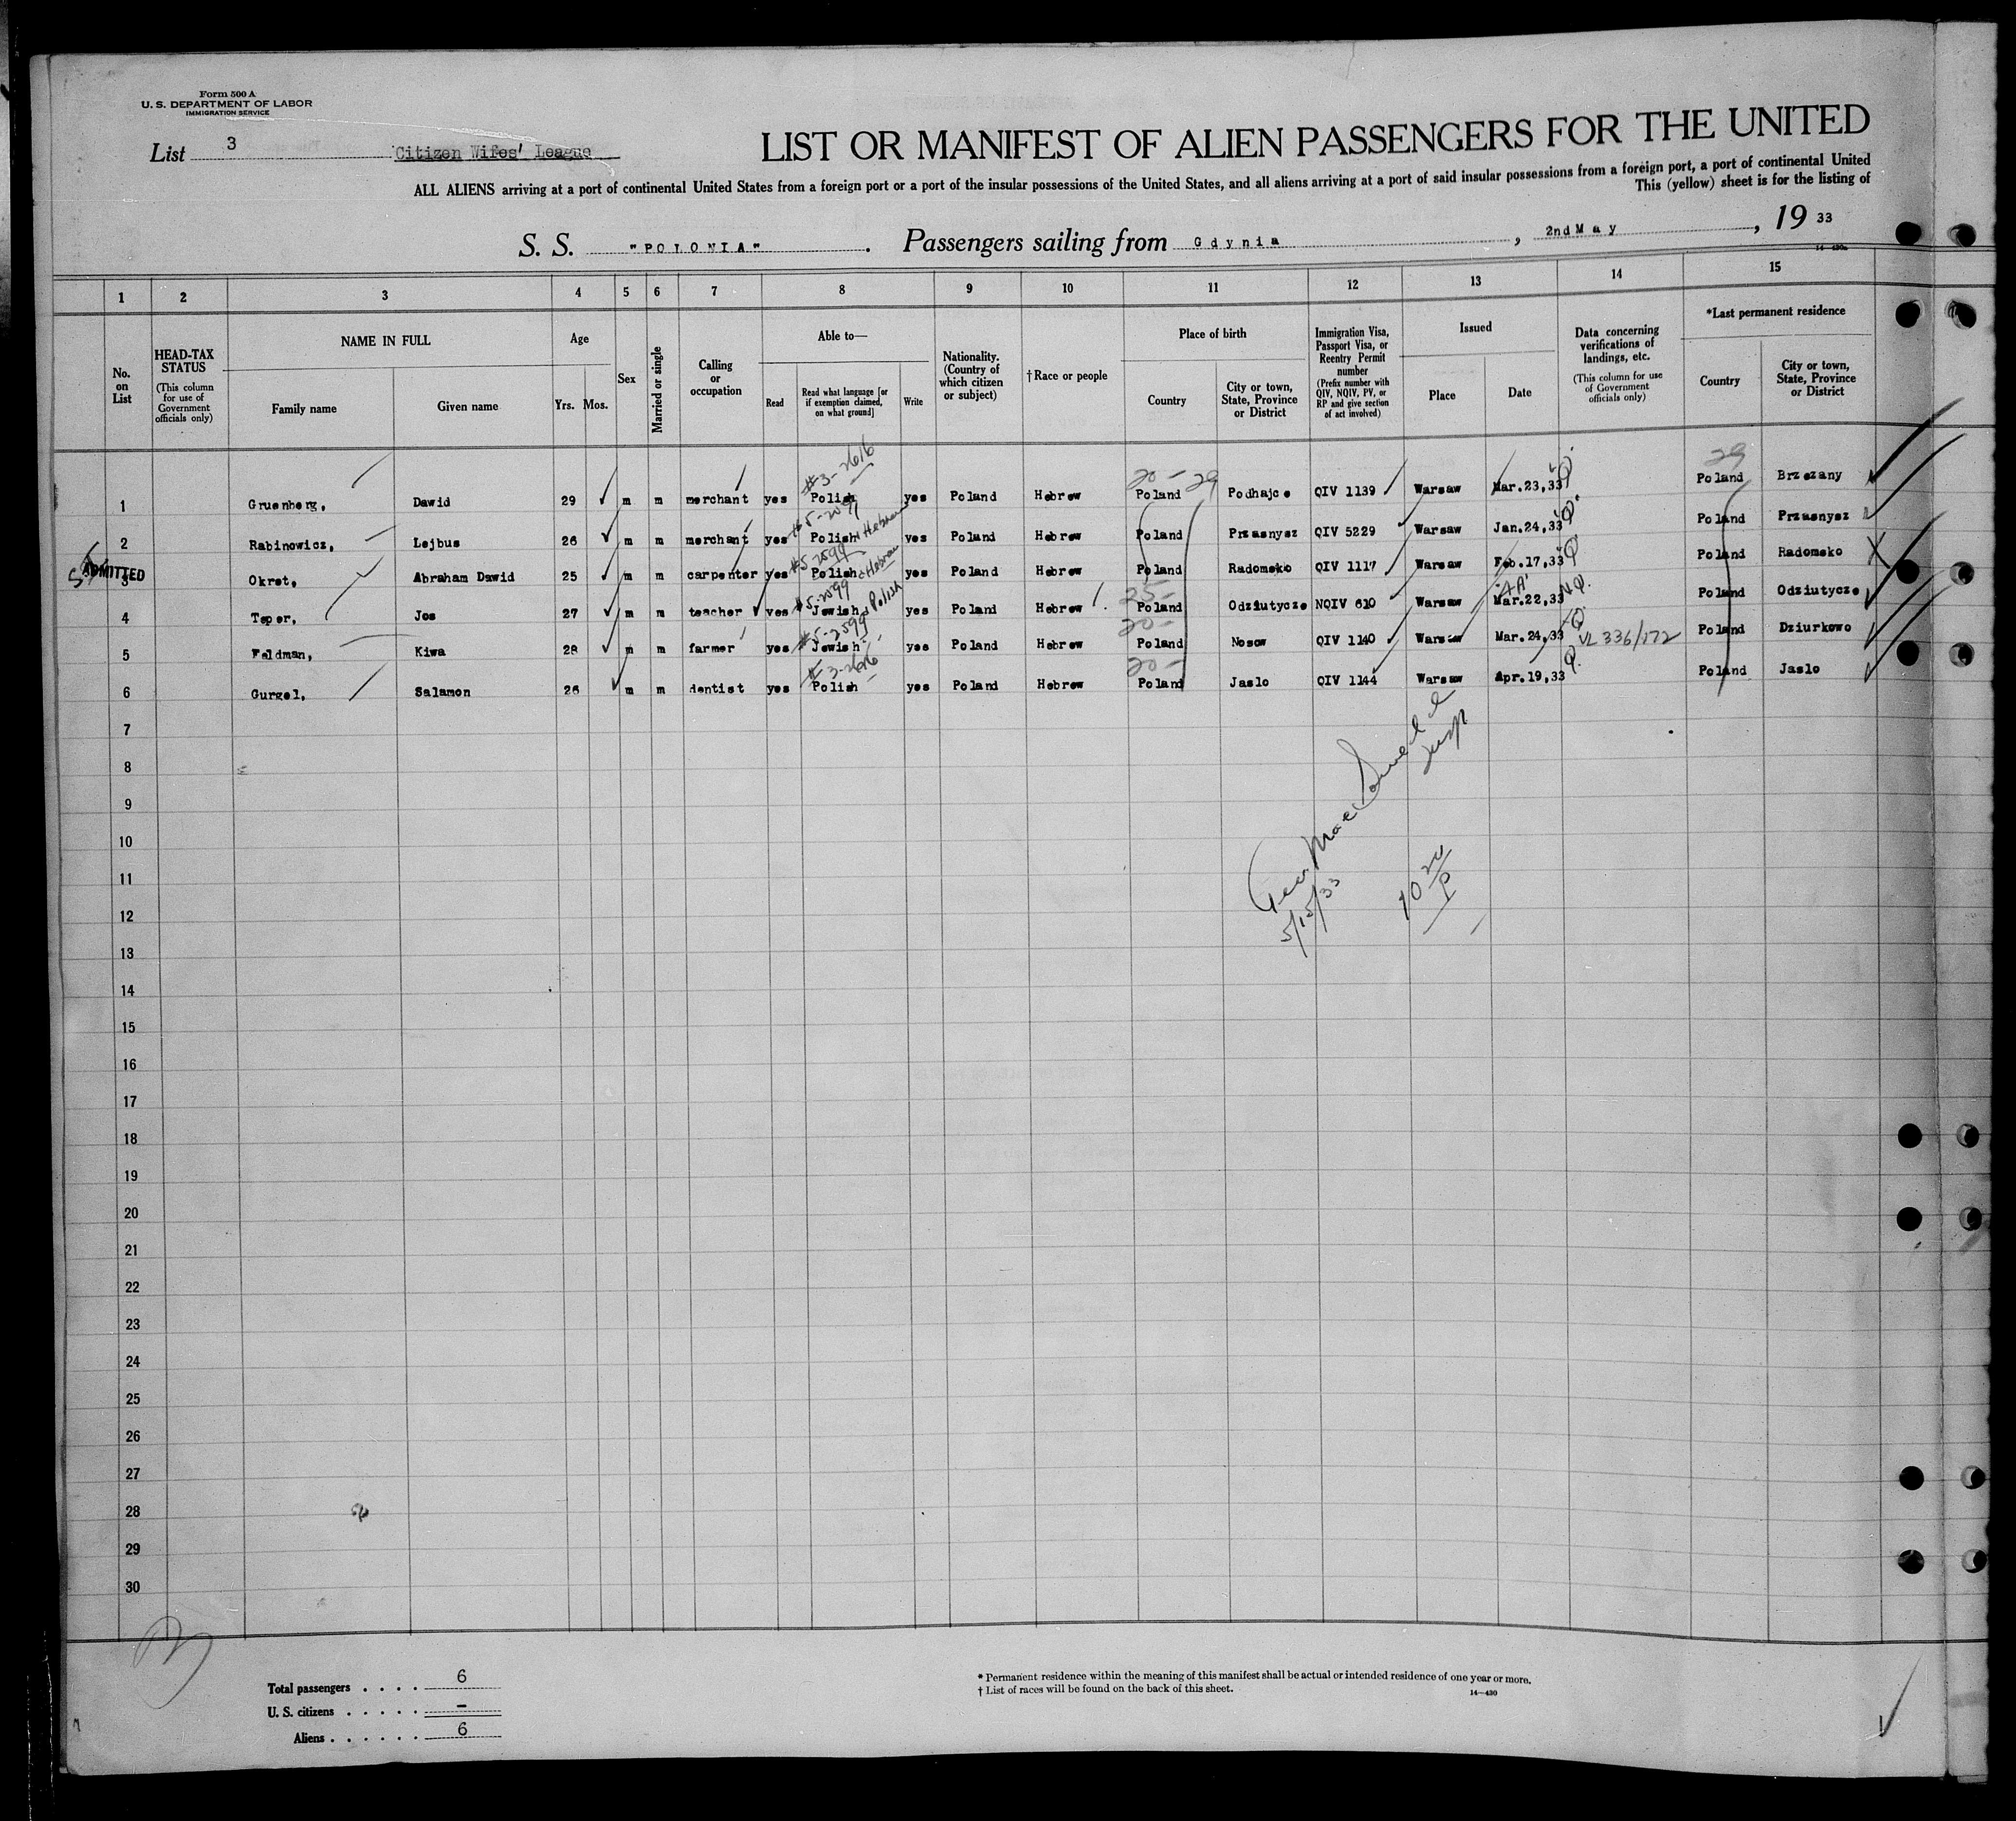 Form 500 A
U. S. DEPARTMENT OF LABOR
IMMIGRATION SERVICE
List 3 Citizen Wifes' League
LIST OR MANIFEST OF ALIEN PASSENGERS FOR THE UNITED
ALL ALIENS arriving at a port of continental United States from a foreign port or a port of the insular possessions of the United States, and all aliens arriving at a port of said insular possessions from a foreign port, a port of continental United
This (yellow) sheet is for the listing of
S. S. "POLONIA". Passengers sailing from Gdynia, 2nd May, 19 33
14—430a
1 2 3 4 5 6 7 8 9 10 11 12 13 14 15
No. on List
HEAD-TAX STATUS (This column for use of Government officials only)
NAME IN FULL
Family name Given name
Age
Yrs. Mos.
Sex
Married or single
Calling or occupation
Able to—
Read Read what language [or if exemption claimed, on what ground] Write
Nationality. (Country of which citizen or subject)
†Race or people
Place of birth
Country City or town, State, Province or District
Immigration Visa, Passport Visa, or Reentry Permit number (Prefix number with QIV, NQIV, PV, or RP and give section of act involved)
Issued
Place Date
Data concerning verifications of landings, etc. (This column for use of Government officials only)
*Last permanent residence
Country City or town, State, Province or District
#3-2616 20- 29 29
1 Gruenberg, Dawid 29 m m merchant yes Polish yes Poland Hebrew Poland Podhajce QIV 1139 Warsaw Mar.23,33 Poland Brzezany
#5-2599 + Hebrew
2 Rabinowicz, Lejbus 26 m m merchant yes Polish yes Poland Hebrew Poland Przasnysz QIV 5229 Warsaw Jan.24,33 Poland Przasnysz
#5-2599 + Hebrew
ADMITTED 3 Okret, Abraham Dawid 25 m m carpenter yes Polish yes Poland Hebrew Poland Radomsko QIV 1117 Warsaw Feb.17,33 Poland Radomsko
#5-2599 Polish 25-
4 Teper, Jos 27 m m teacher yes Jewish yes Poland Hebrew Poland Odziutycze NQIV 610 Warsaw Mar.22,33 N.Q. Poland Odziutycze
#5-2599 20-
5 Feldman, Kiwa 28 m m farmer yes Jewish yes Poland Hebrew Poland Nosow QIV 1140 Warsaw Mar.24,33 VL 336/172 Poland Dziurkowo
#3-2616 20-
6 Gurgel, Salamon 26 m m dentist yes Polish yes Poland Hebrew Poland Jaslo QIV 1144 Warsaw Apr.19,33 Poland Jaslo
7
8
9
10
11
12
13
14
15
16
17
18
19
20
21
22
23
24
25
26
27
28
29
30
5/15/33
Total passengers . . . . 6
U. S. citizens . . . . . –
Aliens . . . . . . 6
* Permanent residence within the meaning of this manifest shall be actual or intended residence of one year or more.
† List of races will be found on the back of this sheet.
14—430